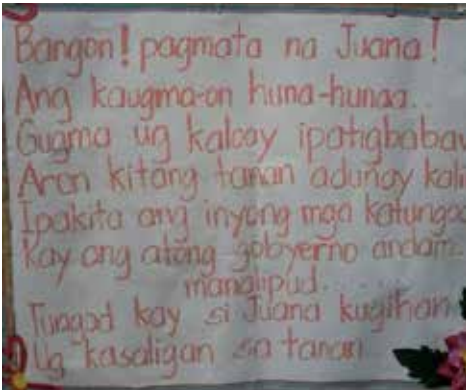 Bangon! pagmata na Juana!
Ang kaugma-on huna-hunaa..
Gugma ug kalooy ipatigbabaw
Aron kitang tanan adunay kali
Ipakita ang inyong mga katungod
Kay ang atong gobyerno andam..
manalipud.....
Tungod kay si Juana kugihan
Ug kasaligan sa tanan